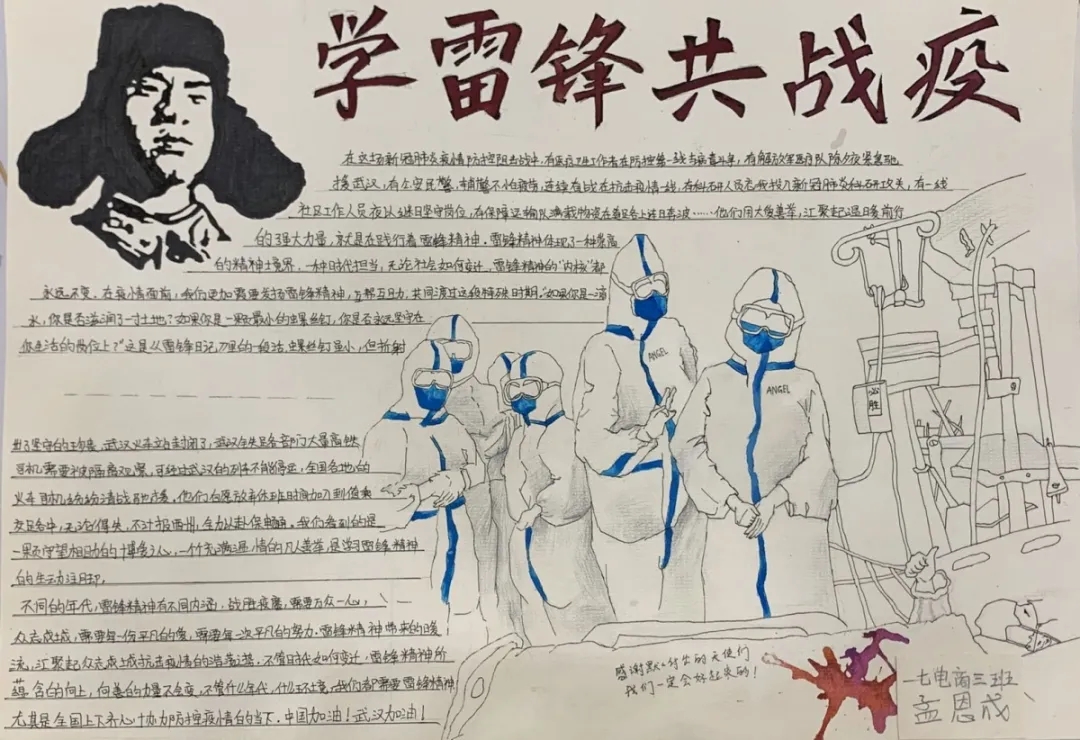 学雷锋共战疫
在这场新冠肺炎疫情防控阻击战中，有医疗卫生工作者在防控第一线与病毒斗争，有解放军医疗队除夕夜紧急驰
援武汉，有公安民警、辅警不怕牺牲，连续奋战在抗击疫情一线，有科研人员忘我投入新冠肺炎科研攻关，有一线
社区工作人员夜以继日坚守岗位，有保障运输队满载物资在道路上连日奔波……他们用大爱善举，汇聚起温暖前行
的强大力量，就是在践行着雷锋精神。雷锋精神体现了一种崇高
的精神境界、一种时代担当，无论社会如何变迁，雷锋精神的“内核”都
永远不变。在疫情面前，我们更加需要发扬雷锋精神，互帮互助，共同渡过这段特殊时期。“如果你是一滴
水，你是否滋润了一寸土地？如果你是一颗最小的螺丝钉，你是否永远坚守在
你生活的岗位上？”这是《雷锋日记》里的一段话，螺丝钉虽小，但折射
出了坚守的主场，武汉火车站封闭了，武汉铁路各部门大量高铁
司机需要被隔离观察，可经过武汉的列车不能停运，全国各地的
火车司机纷纷请战驰援，他们自愿放弃休班时间加入到值乘
交路中，不论得失，不计报酬，全力以赴保畅通。我们看到的是
一颗颗守望相助的博爱之心，一个个充满温情的凡人善举，是学习雷锋精神
的生动注脚。
不同的年代，雷锋精神有不同内涵，战胜疫魔，需要万众一心，
众志成城，需要每一份平凡的爱，需要每一次平凡的努力。雷锋精神带来的暖
流，汇聚起众志成城抗击疫情的浩荡潮，不管时代如何变迁，雷锋精神所
蕴含的向上、向善的力量不会变，不管什么年代，什么环境，我们都需要雷锋精神
尤其是全国上下齐心协力防控疫情的当下。中国加油！武汉加油！
ANGEL
ANGEL
必胜
感谢默默付出的天使们
我们一定会好起来的！
一七电商三班
孟恩成